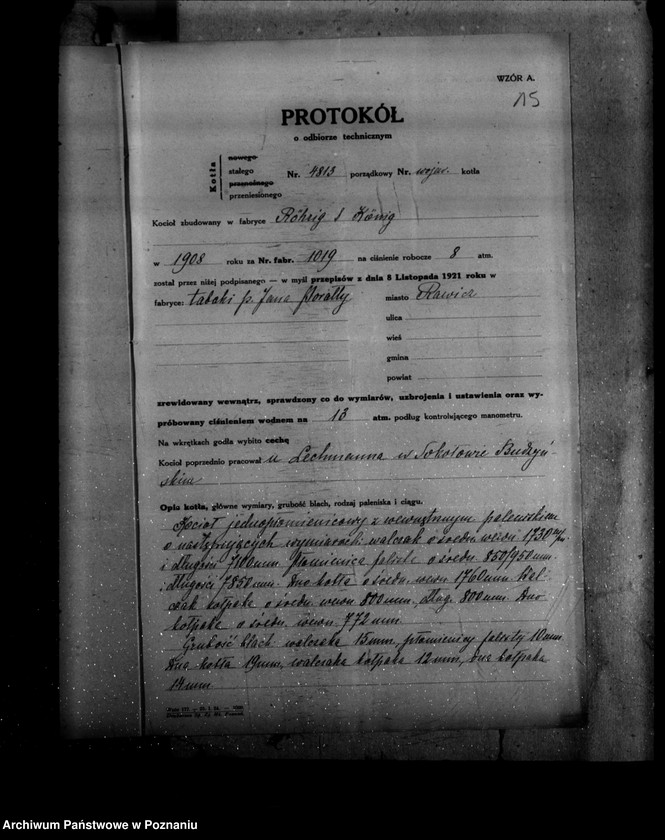 WZÓR A.
15
PROTOKÓŁ
o odbiorze technicznym
Kotła
nowego
stałego
przenośnego
przeniesionego
Nr. 4813 porządkowy Nr. wojew. kotła
Kocioł zbudowany w fabryce Röhrig & König
w 1908 roku za Nr. fabr. 1019 na ciśnienie robocze 8 atm.
został przez niżej podpisanego — w myśl przepisów z dnia 8 Listopada 1921 roku w
fabryce: tabaki p. Jana miasto Rawicz
ulica
wieś
gmina
powiat
zrewidowany wewnątrz, sprawdzony co do wymiarów, uzbrojenia i ustawienia oraz wy-
próbowany ciśnieniem wodnem na 13 atm. podług kontrolującego manometru.
Na wkrętkach godła wybito cechę
Kocioł poprzednio pracował u Lechmanna w Sokołowie Budzyń-
skim
Opis kotła, główne wymiary, grubość blach, rodzaj paleniska i ciągu.
Kocioł jednopłomienicowy z wewnętrznym paleniskiem
o następujących wymiarach: walczak o średn. wewn 1730 m/m
i długości 7100 mm płomienica falista o średn. 850/950 mm
i długości 7850 mm. Dno kotła o średn. wewn 1760 mm Wal-
czak kołpaka o średn. wewn. 800 mm., dług. 800 mm Dno
kołpaka o średn. wewn. 772 mm
Grubość blach: walczaka 15 mm, płomienicy falistej 10 mm
dna kotła 19 mm, walczaka kołpaka 12 mm, dna kołpaka
14 mm
Archiwum Państwowe w Poznaniu